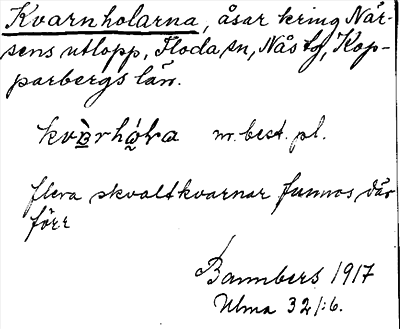 Kvarnholarna, åsar kring När-
sens utlopp, Floda sn, Nås tg, Kop-
parbergs län.
m. best. pl.
flera skvaltkvarnar funnos där
förr
Bannbers 1917
Ulma 32/:6.